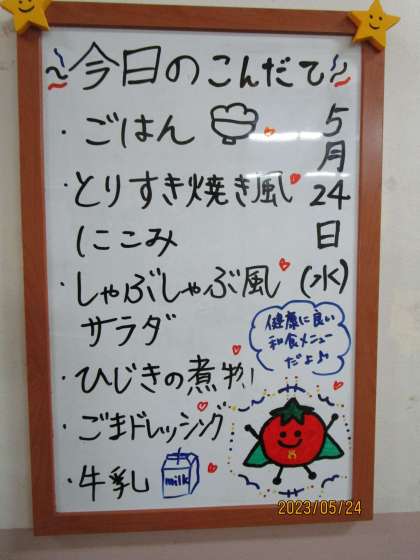 今日のこんだて
・ごはん
・とりすき焼き風
にこみ
・しゃぶしゃぶ風
サラダ
・ひじきの煮物
・ごまドレッシング
・牛乳
milk
5月24日(水)
健康に良い
和食メニュー
だよ♪
8
2023/05/24